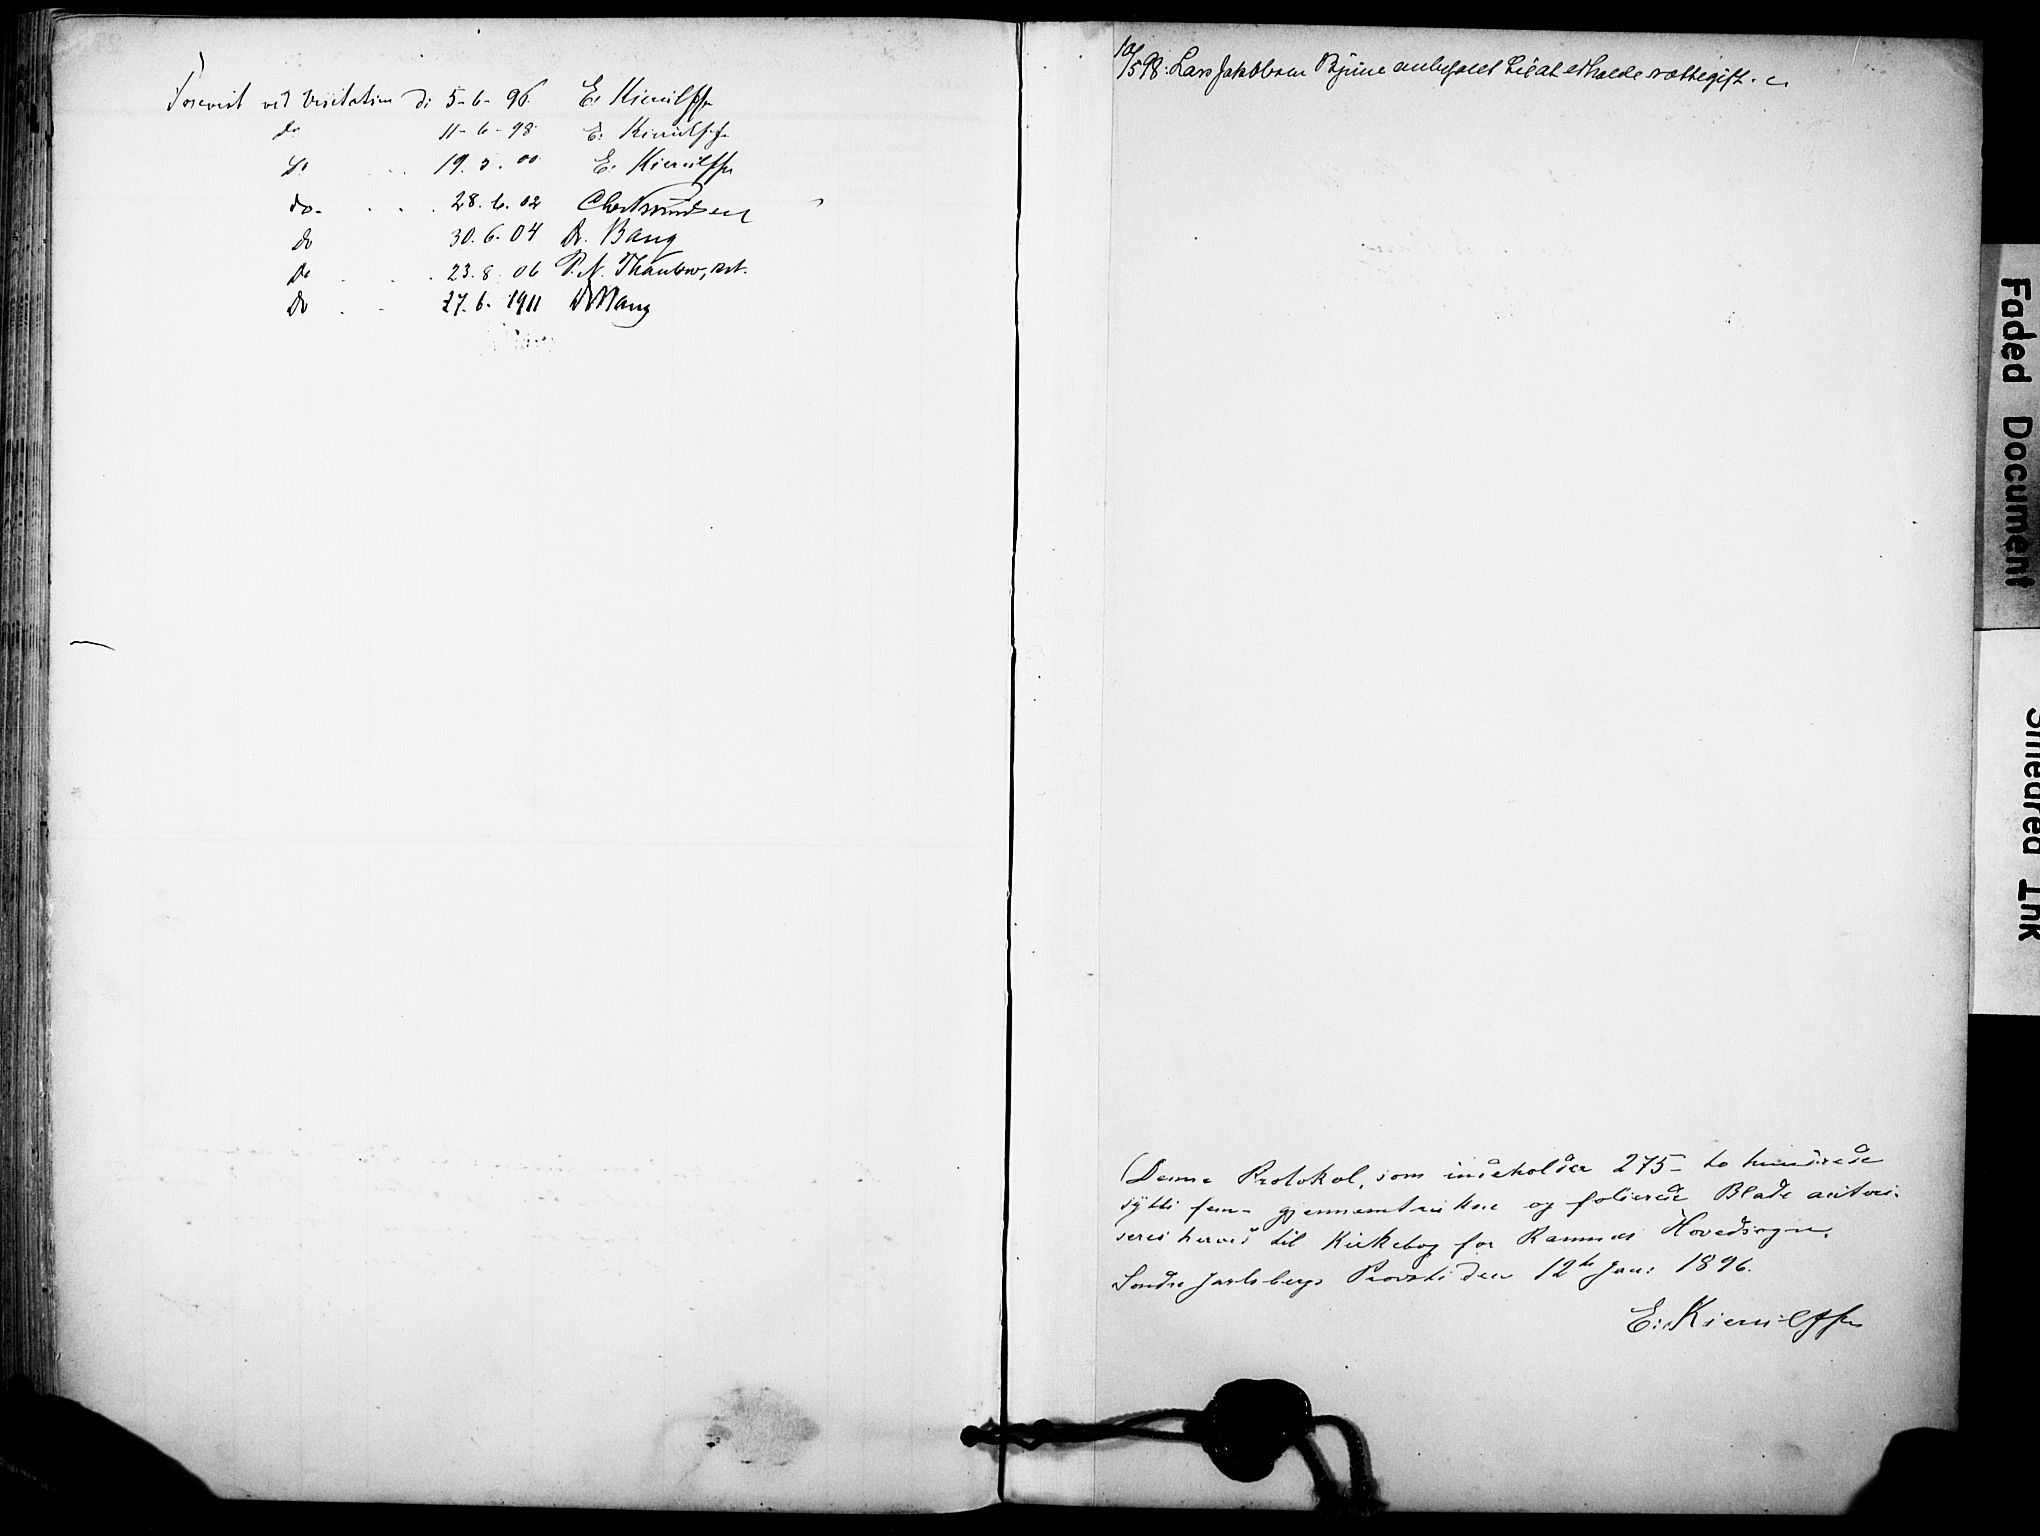 Forevist ved Visitatien di 5-6-96. E. Kierulff
do 11-6-98. E. Kierulff
do . . . 19.5.00 E. Kierulff
do. . . . 28.6.02
do 30.6.04 Dr. Bang
Do . . . 23.8.06 P. N. Thaulow, cst.
Do . . 27.6.1911 Dr Bang
10/5 98. Lars Jakobsen Bjune anbefalet til at erholde rottegift.
Denne Protokol, som indeholder 275- to hundrede
sytti fem- gjennemtrukne og folierede Blade autori-
seres herved til Kirkebog for Ramnæs Hovedsogn.
Søndre Jarlsbergs Provsti den 12te Jan: 1896.
E. Kierulff
Faded Document
Smeared Ink